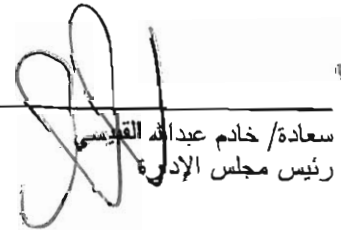 سعادة/ خادم عبدالله القبيسي
رئيس مجلس الإدارة